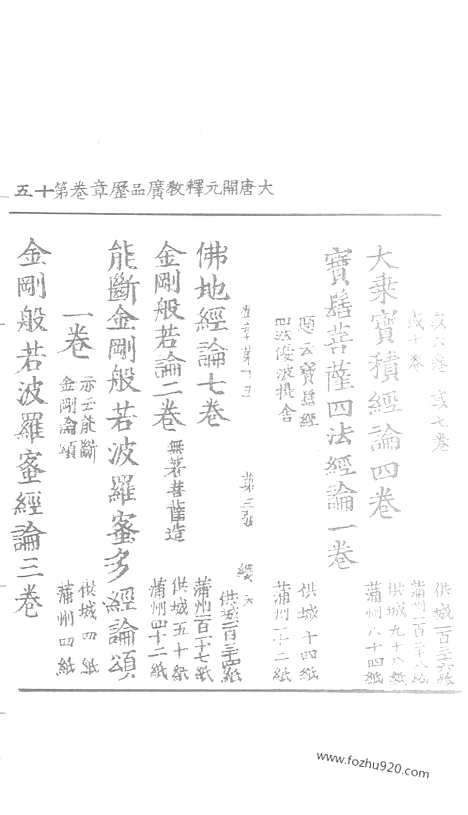 大唐開元釋教廣品歷章卷第十五
或六卷 或七卷
或十卷
供城一百三十六紙
蒲州一百三十八紙
大乘寶積經論四卷
供城九十八紙
蒲州八十四紙
寶髻菩薩四法經論一卷
題云寶髻經
四法優波提舍
供城十四紙
蒲州十二紙
第三張
佛地經論七卷
供城一百三十四紙
蒲州一百十七紙
金剛般若論二卷
無著菩薩造
供城五十紙
蒲州四十二紙
能斷金剛般若波羅蜜多經論頌
一卷
亦云能斷
金剛論頌
供城四紙
蒲州四紙
金剛般若波羅蜜經論三卷
www.fozhu920.com